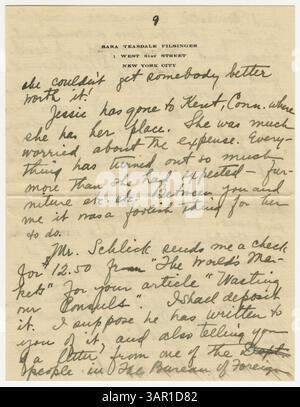 9
SARA TEASDALE FILSINGER
1 WEST 81ST STREET
NEW YORK CITY
she couldn't get somebody better
worth it!
Jessie has gone to Kent, Conn. where
she has her place. She was much
worried about the expense. Every-
thing has turned out so much
more than she had expected — fur-
niture etc. etc. Between you and
me it was a foolish thing for her
to do.
Mr. Schlick sends me a check
for $12.50 from "The Worlds Mar-
kets" for your article "Wasting
our Consuls". I shall deposit
it. I suppose he has written to
you of it, and also telling you
of a letter, from one of the
people in The Bureau of Foreign
alamy
Image ID: 3AR1D82
www.alamy.com